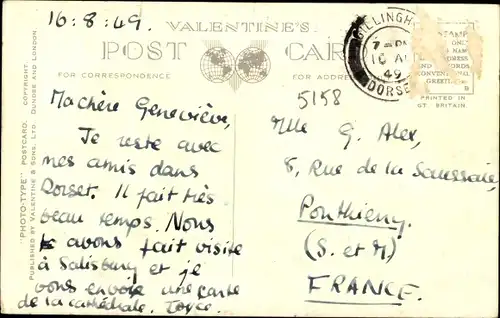 16.8.49.
VALENTINE'S
POST CARD
FOR CORRESPONDENCE
FOR ADDRESS
GILLINGH
7-PM
16 AU
49
DORSE
STAMP
PRINTED IN
GT. BRITAIN.
"PHOTO-TYPE" POSTCARD. COPYRIGHT.
PUBLISHED BY VALENTINE & SONS, LTD DUNDEE AND LONDON.
Ma chère Geneviève,
Je reste avec
mes amis dans
Dorset. Il fait très
beau temps. Nous
avons fait visite
à Salisbury et je
vous envoie une carte
de la cathédrale. Joyce.
5158
Mlle G. Alex,
8, Rue de la Saussaie,
Ponthierry.
(S. et M)
FRANCE.